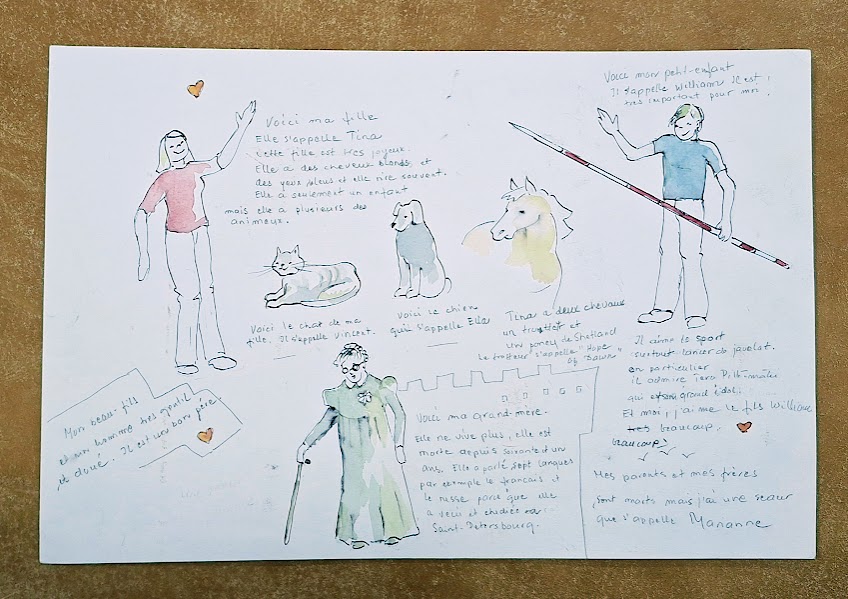 Voici ma fille
Elle s'appelle Tina
Cette fille est très joyeux.
Elle a des cheveux blonds et
des yeux bleus et elle rire souvent.
Elle a seulement un enfant
mais elle a plusieurs des
animeux.
Voici mon petit-enfant
Il s'appelle William Il est
très important pour moi!
Voici le chat de ma
fille. Il s'appelle Vincent.
Voici le chien
qui s'appelle Ella
Tina a deux chevaux
un trotteur et
un poney de Shetland
Le trotteur s'appelle "Hope
of Dawn"
Il aime le sport
surtout lancer de javelot.
en particulier
il admire Tero Pitkämäki
qui grand idol.
Et moi, j'aime le fils William
très beaucoup.
beaucoup!
Mon beau-fils
est un homme très gentil
et doué. Il est un bon père.
Voici ma grand-mère.
Elle ne vive plus, elle est
morte depuis soixante et un
ans. Elle a parlé sept langues
par exemple le français et
le russe parce que elle
a vécu et étudiée
Saint-Petersbourg.
Mes parents et mes frères
sont morts mais j'ai une seaur
que s'appelle Marianne